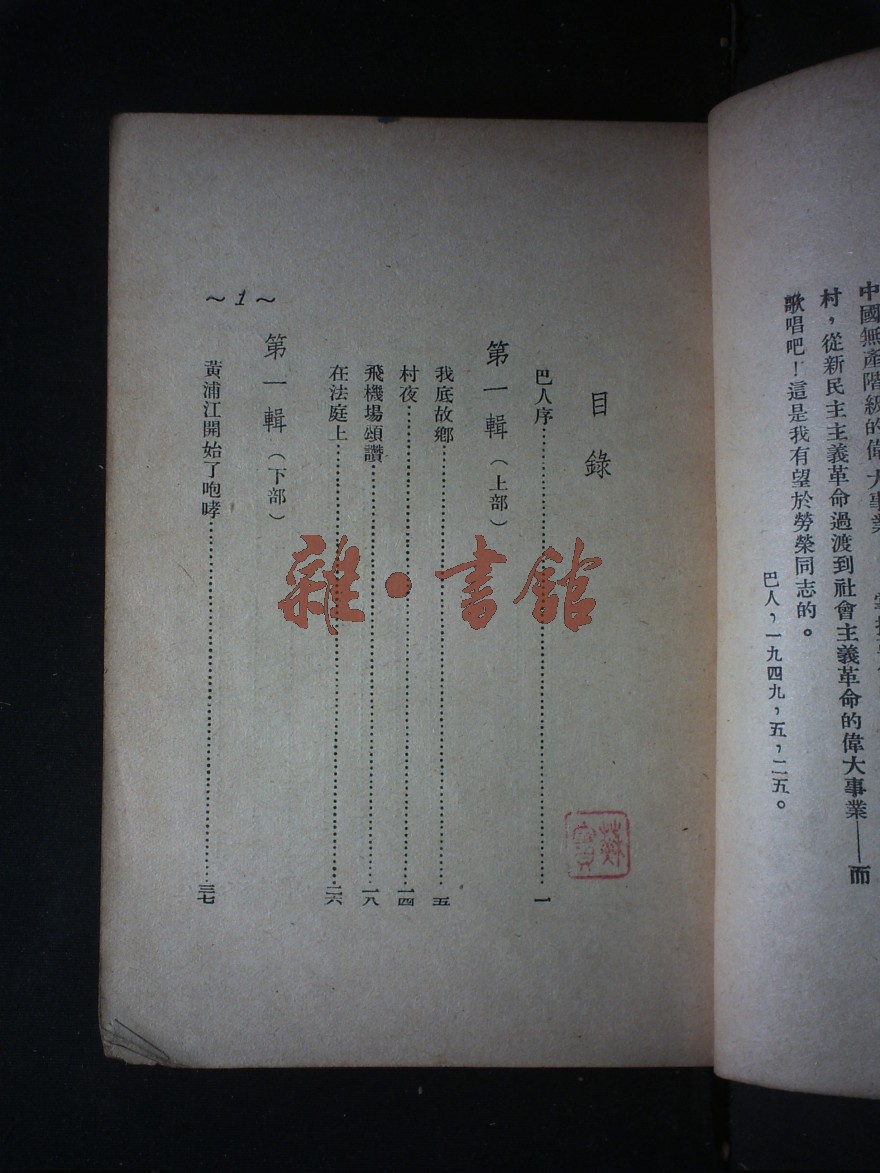 中國無產階級的偉大事業
村，從新民主主義革命過渡到社會主義革命的偉大事業——而
歌唱吧！這是我有望於勞榮同志的。
巴人，一九四九，五，二五。
目錄
巴人序……一
第一輯（上部）
我底故鄉……五
村夜……一四
飛機場頌讚……一八
在法庭上……二六
第一輯（下部）
黃浦江開始了咆哮……三七
～1～
雜·書館
蘇寶